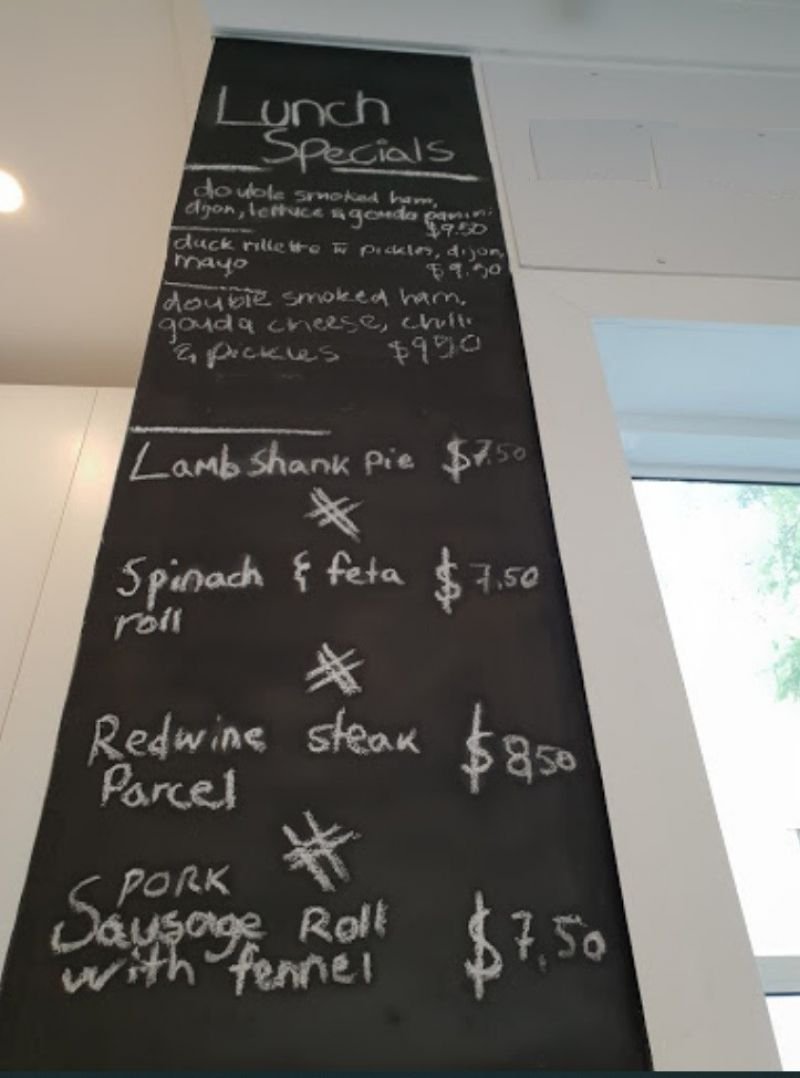 Lunch
Specials
double smoked ham,
dijon, lettuce & gouda panini
$9.50
duck rillette & pickles, dijon,
mayo $9.50
double smoked ham,
gouda cheese, chilli
& pickles $9.50
Lamb Shank Pie $7.50
Spinach & feta $7.50
roll
Redwine steak $8.50
Parcel
PORK
Sausage Roll $7.50
with fennel